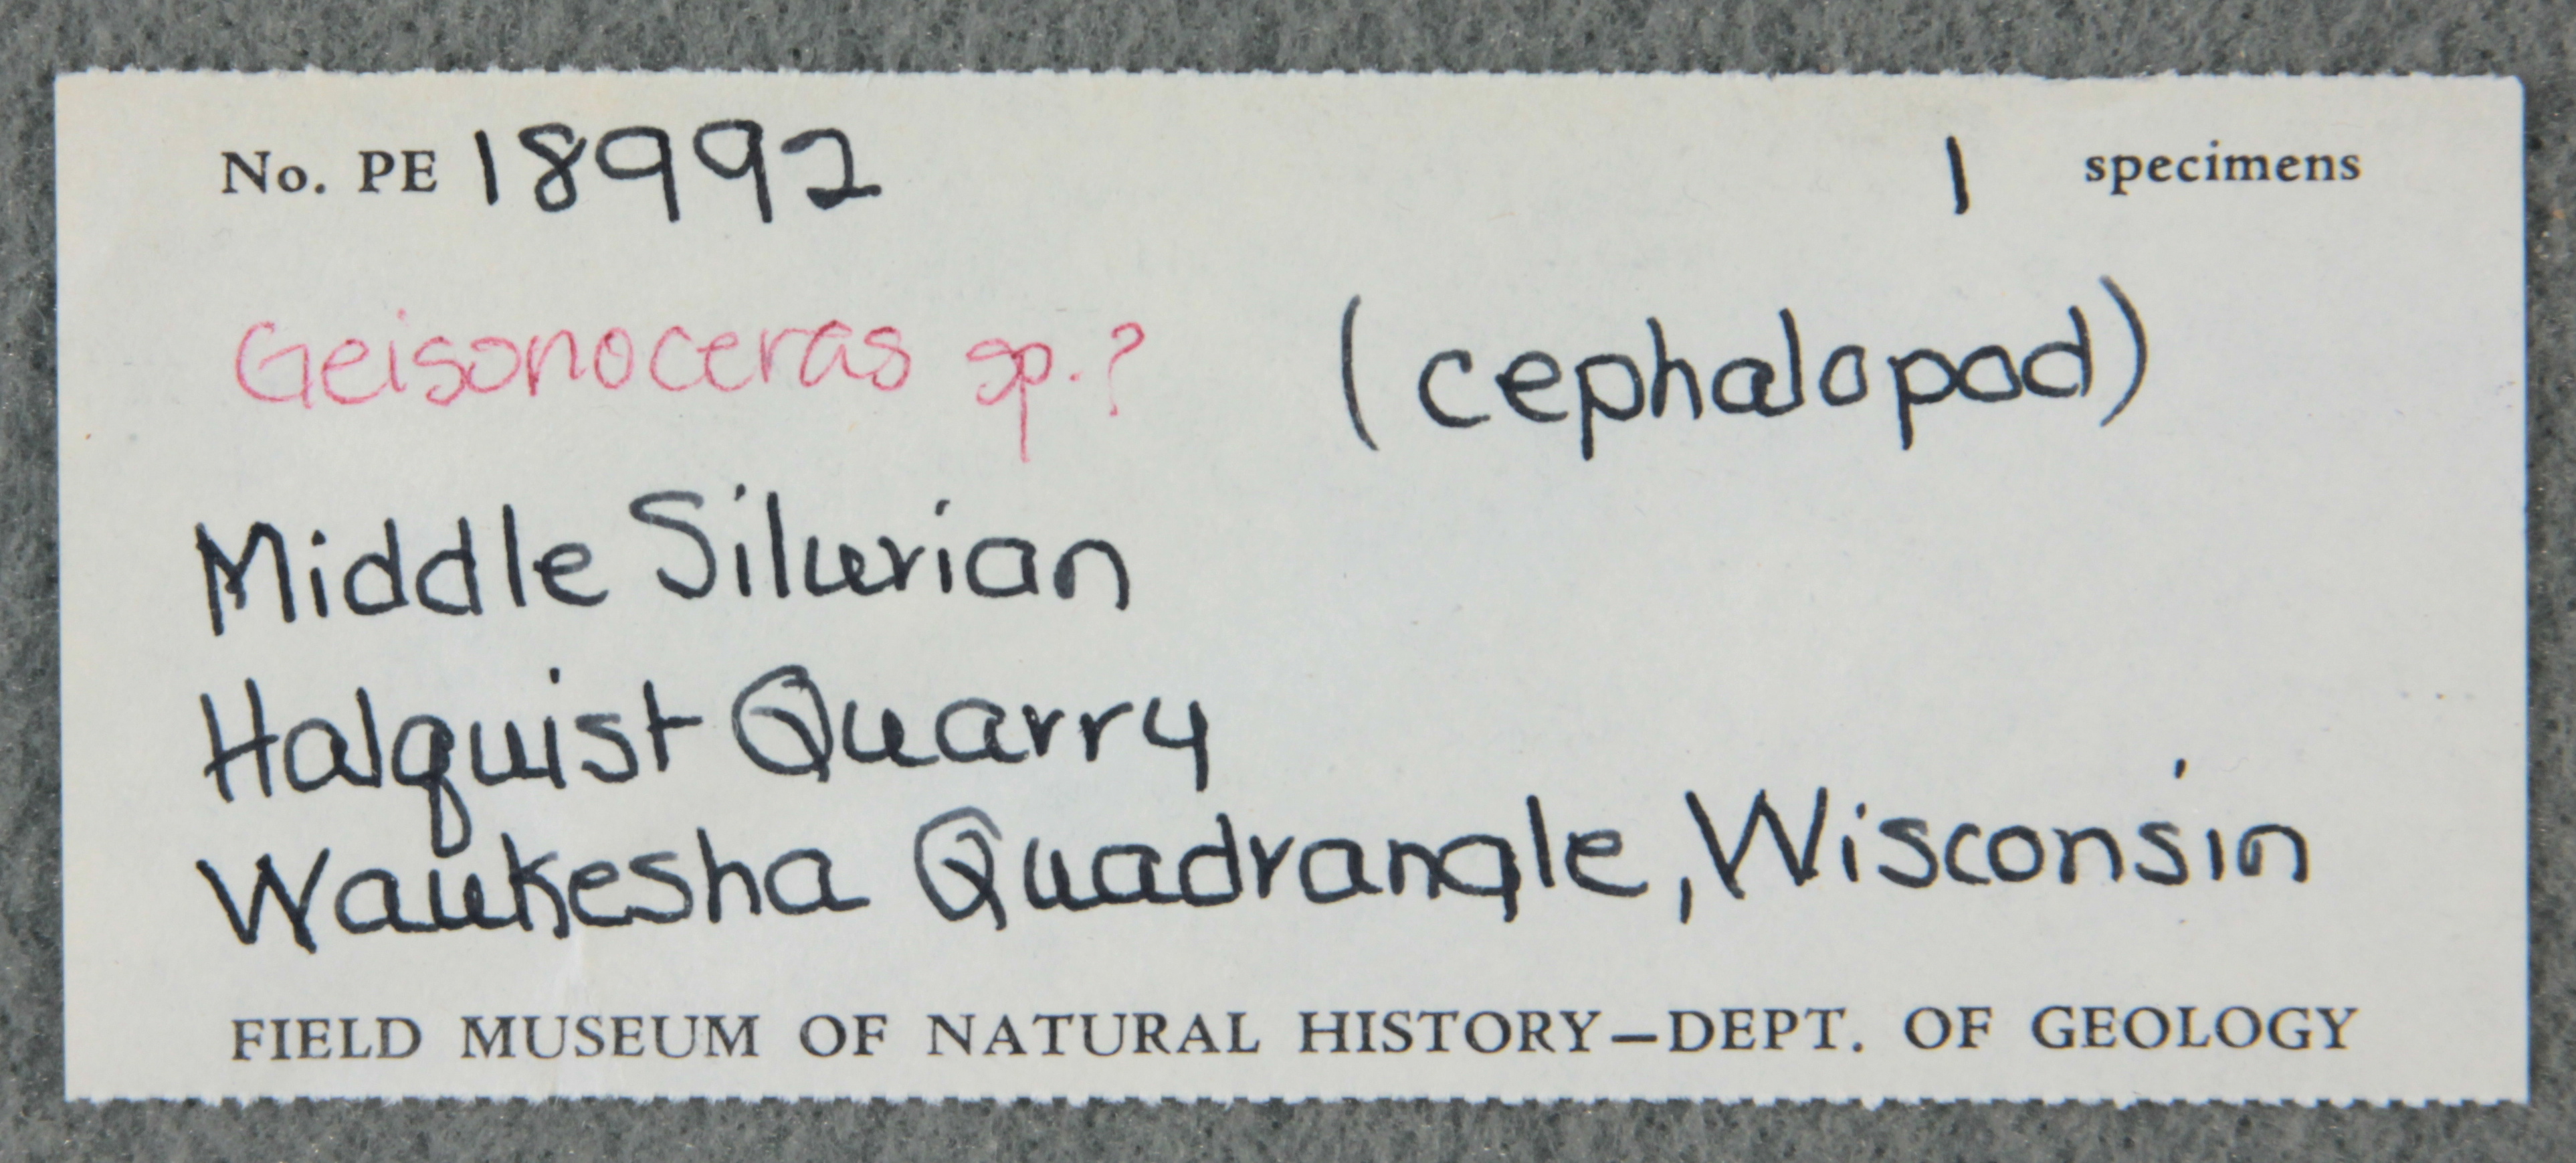 No. PE 18992 1 specimens
Geisonoceras sp.? (cephalopod)
Middle Silurian
Halquist Quarry
Waukesha Quadrangle, Wisconsin
FIELD MUSEUM OF NATURAL HISTORY–DEPT. OF GEOLOGY